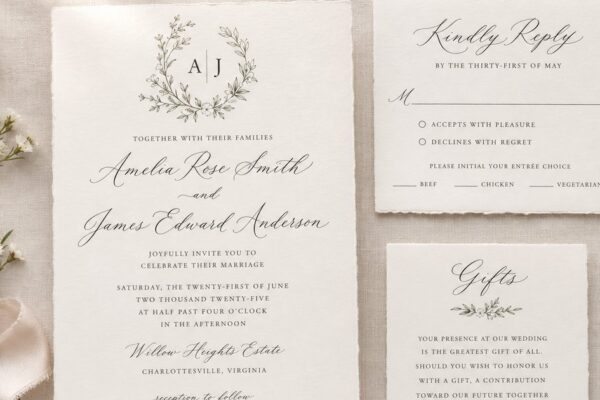 A | J
TOGETHER WITH THEIR FAMILIES
Amelia Rose Smith
and
James Edward Anderson
JOYFULLY INVITE YOU TO
CELEBRATE THEIR MARRIAGE
SATURDAY, THE TWENTY-FIRST OF JUNE
TWO THOUSAND TWENTY-FIVE
AT HALF PAST FOUR O'CLOCK
IN THE AFTERNOON
Willow Heights Estate
CHARLOTTESVILLE, VIRGINIA
reception to follow
Kindly Reply
BY THE THIRTY-FIRST OF MAY
M
ACCEPTS WITH PLEASURE
DECLINES WITH REGRET
PLEASE INITIAL YOUR ENTRÉE CHOICE
BEEF CHICKEN VEGETARIAN
Gifts
YOUR PRESENCE AT OUR WEDDING
IS THE GREATEST GIFT OF ALL.
SHOULD YOU WISH TO HONOR US
WITH A GIFT, A CONTRIBUTION
TOWARD OUR FUTURE TOGETHER